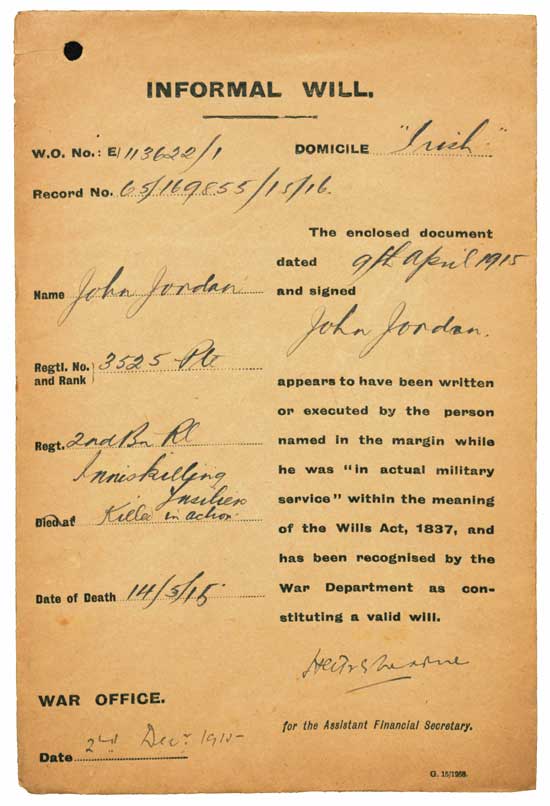 INFORMAL WILL.
W.O. No.: E/113622/1
DOMICILE "Irish"
Record No. 65/169855/15/16.
Name John Jordan
Regtl. No. and Rank } 3525 Pte
Regt. 2nd Bn Rl
Inniskilling
Fusiliers
Died at Killed in action
Date of Death 14/5/15
WAR OFFICE.
Date 2nd Decr 1915
The enclosed document
dated 9th April 1915
and signed
John Jordan.
appears to have been written
or executed by the person
named in the margin while
he was "in actual military
service" within the meaning
of the Wills Act, 1837, and
has been recognised by the
War Department as con-
stituting a valid will.
for the Assistant Financial Secretary.